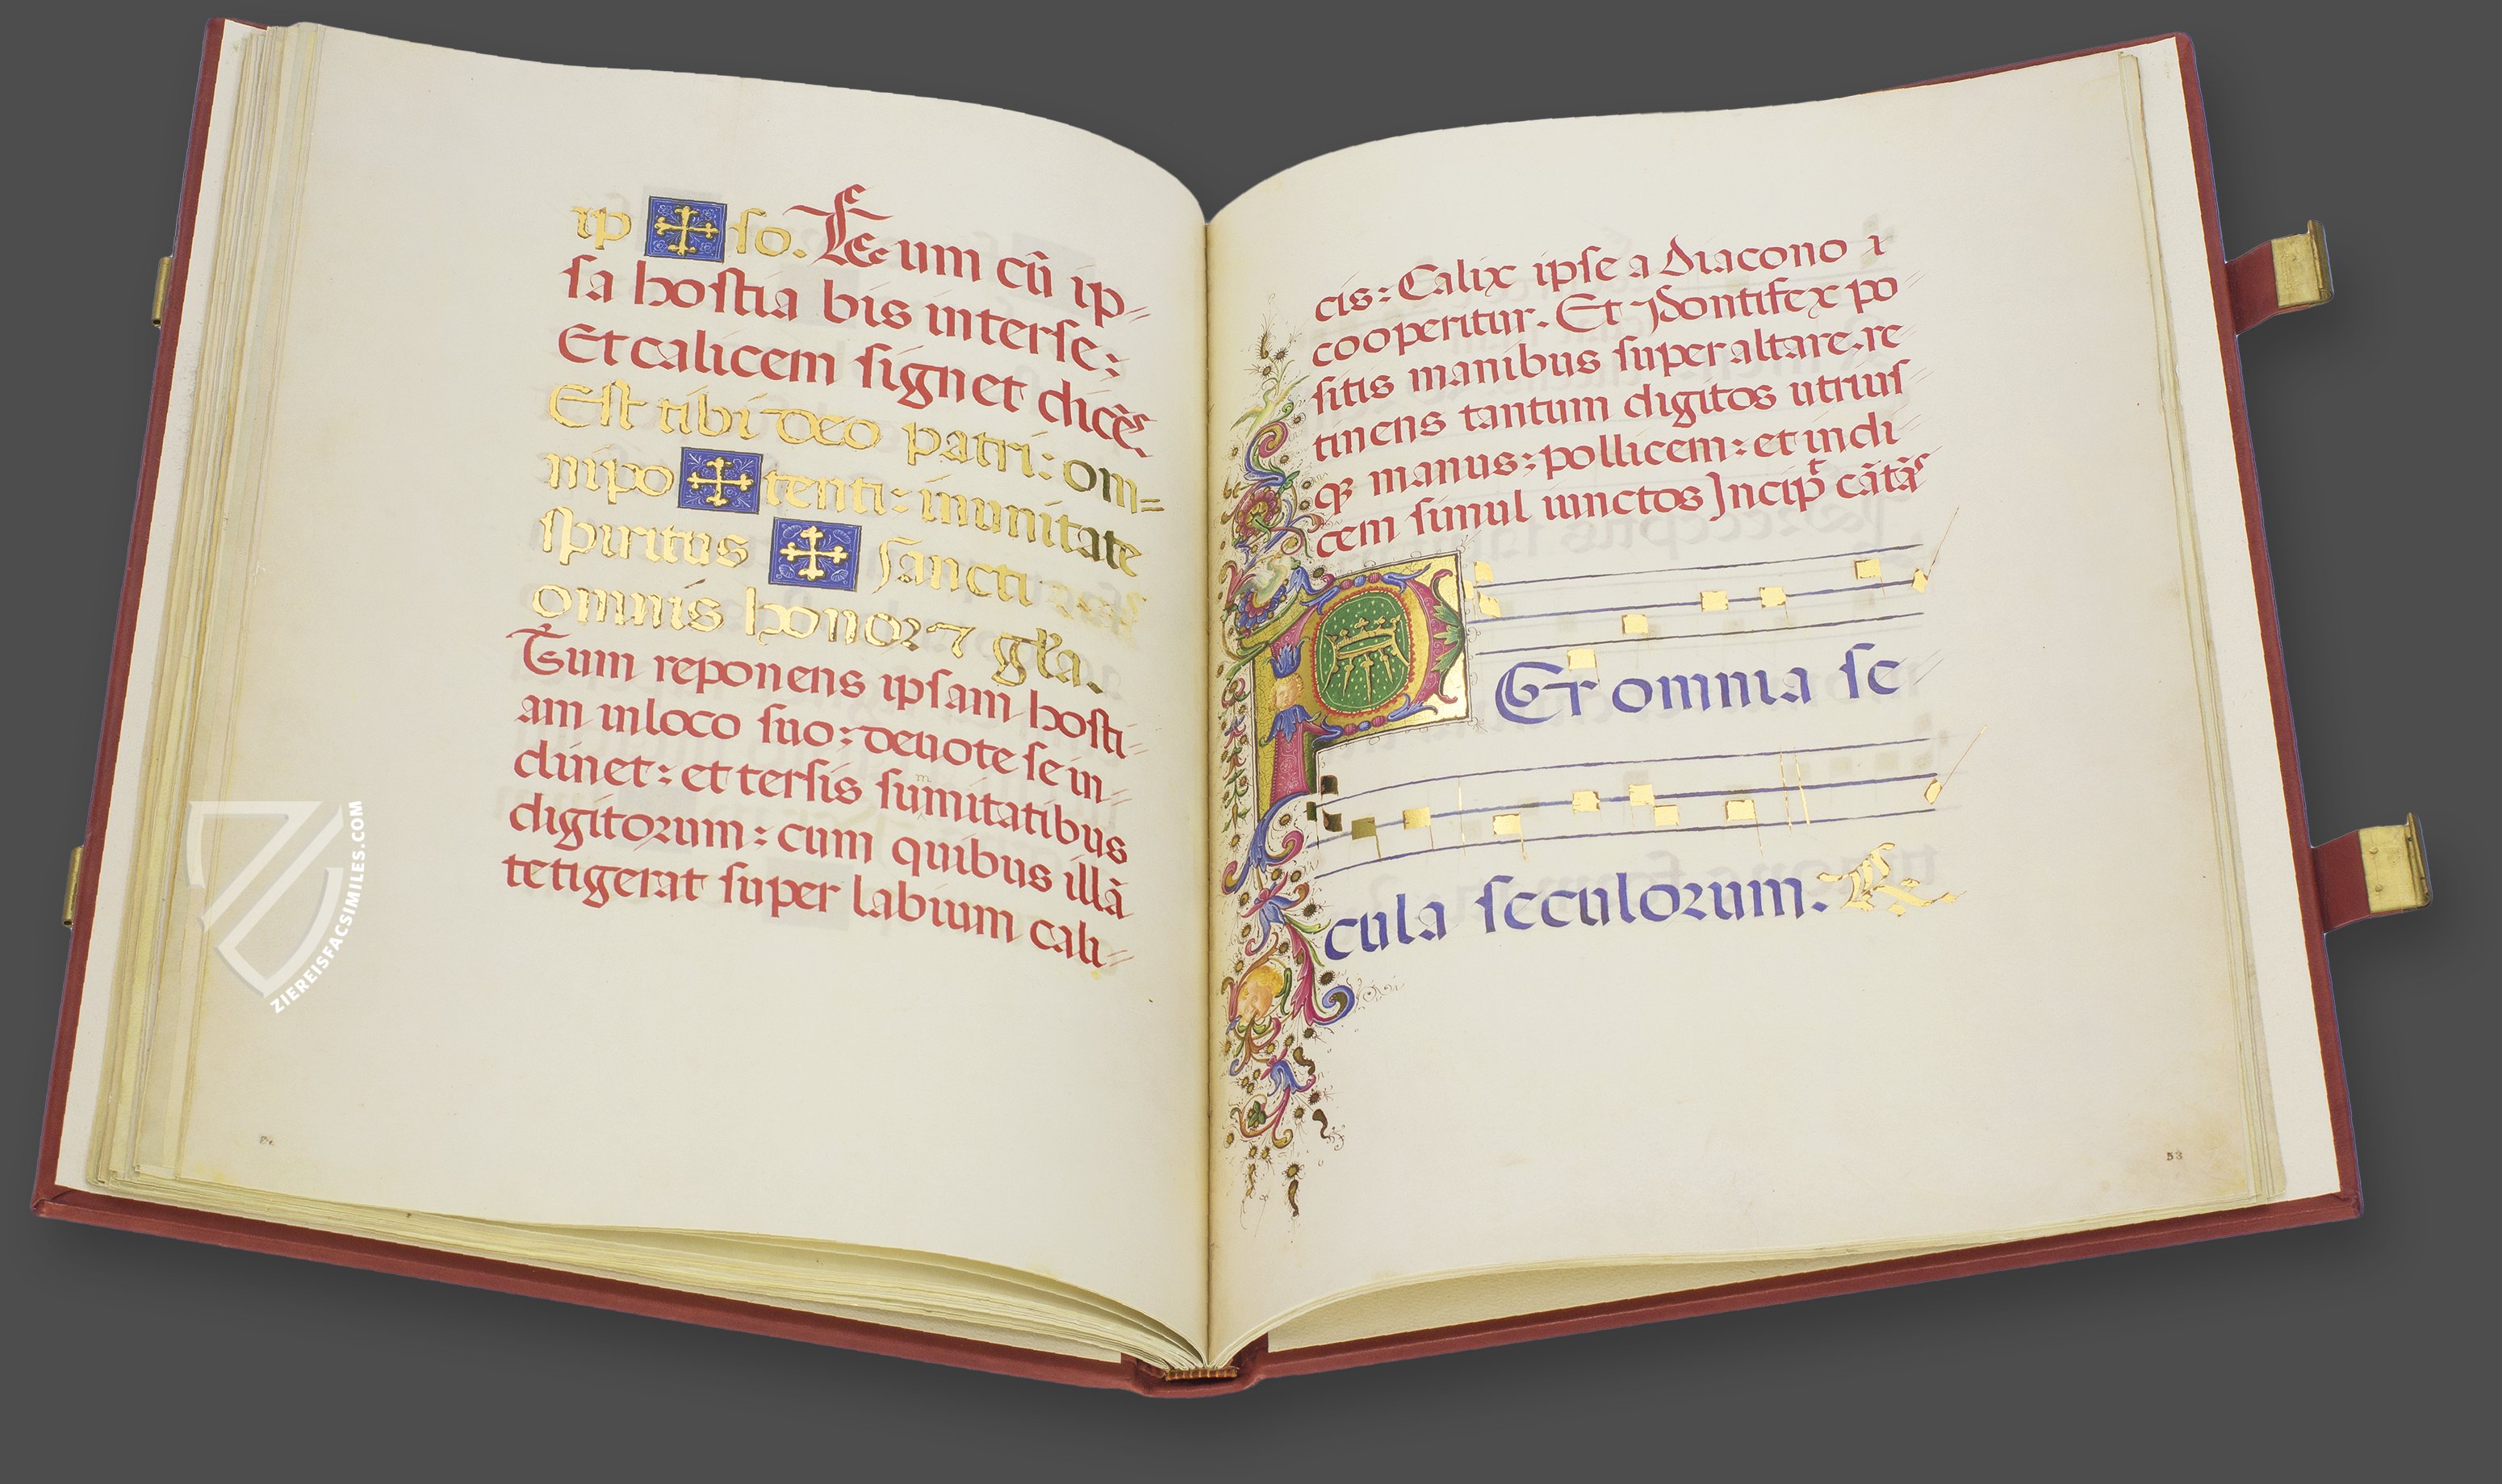 ip ſo. Et cum cū ip-
ſa hoſtia bis inter ſe:
Et calicem ſignet dicēs
Eſt tibi deo patri: om=
nipo tenti: in unitate
ſpiritus ſancti
omnis honor ⁊ gła.
Tum reponens ipſam hoſti-
am in loco ſuo: deuote ſe in-
clinet: et terſis ſumitatibus
digitorum: cum quibus illā
tetigerat ſuper labium cali-
cis: Calix ipſe a Diacono
cooperitur. Et Pontifex po
ſitis manibus ſuper altare: re
tinens tantum digitos utriuſ
manus: pollicem: et indi
cem ſimul iunctos Incip cātās
P Er omnia ſe
cula ſeculorum.
53
ZIEREISFACSIMILES.COM